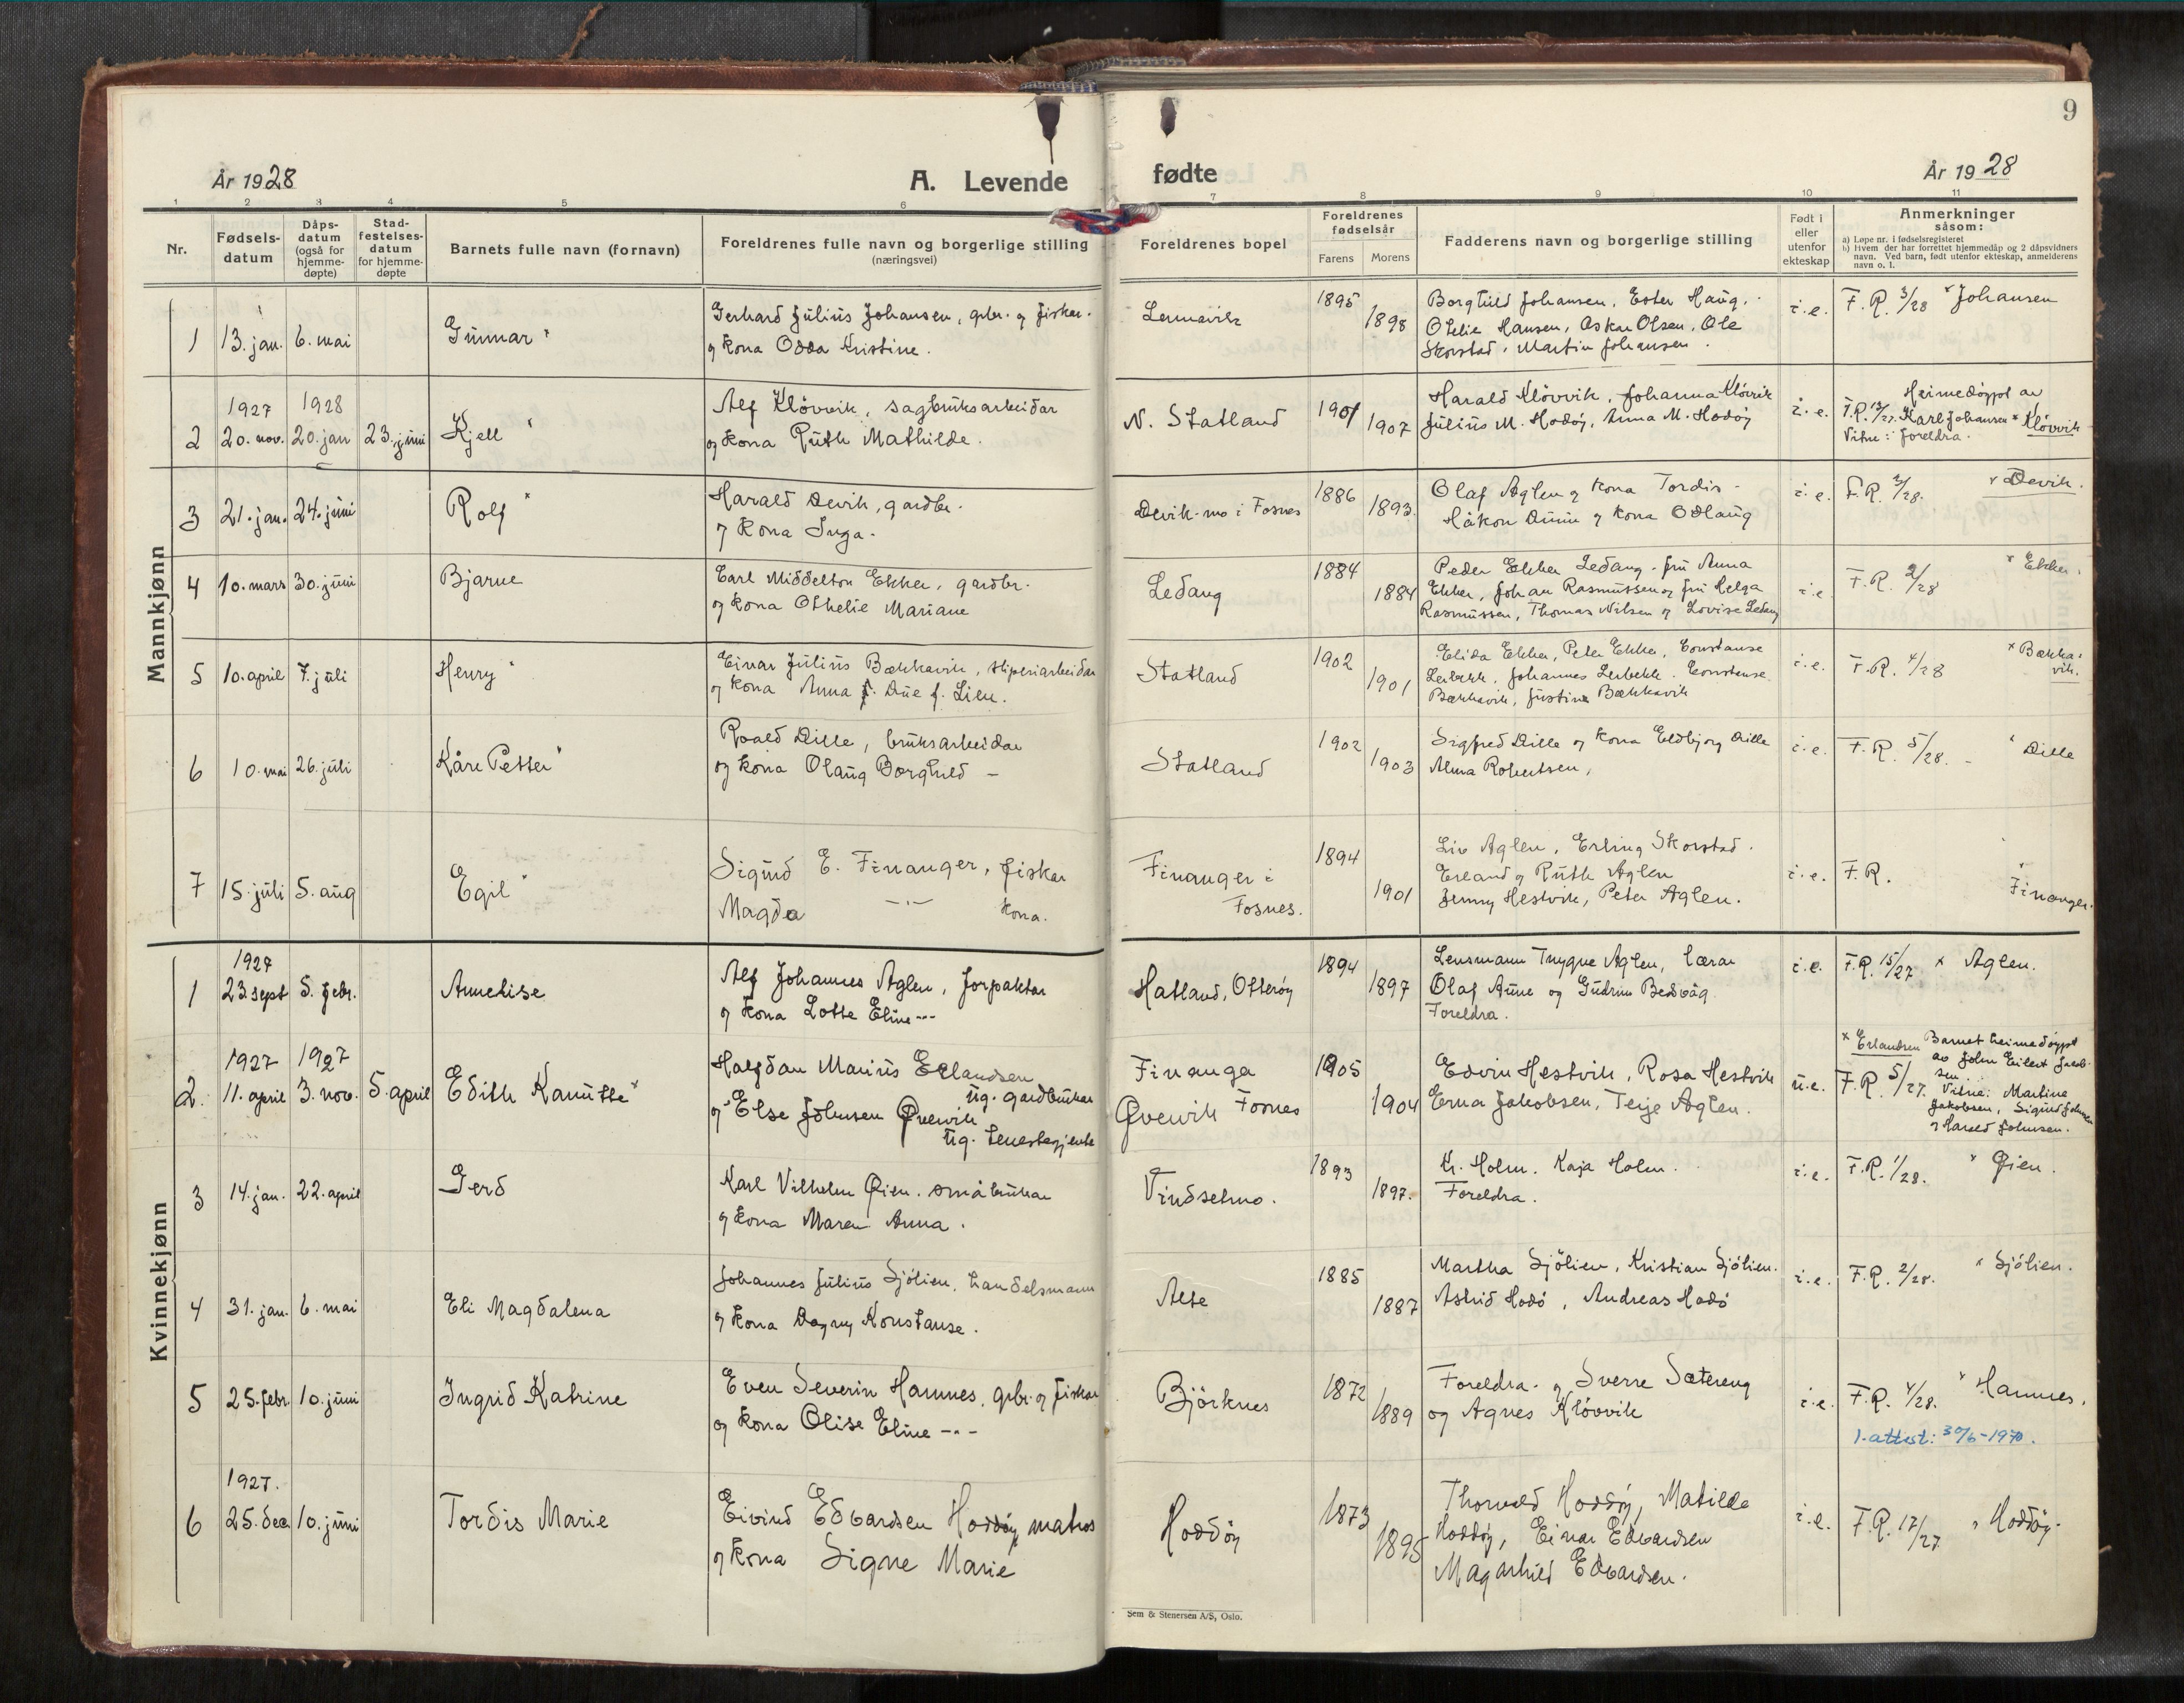 9
År 1928
A. Levende fødte
År 1928
1 2 3 4 5 6 7 8 9 10 11
Nr.
Fødsels-
datum
Dåps-
datum
(også for
hjemme-
døpte)
Stad-
festelses-
datum
for hjemme-
døpte
Barnets fulle navn (fornavn)
Foreldrenes fulle navn og borgerlige stilling
(næringsvei)
Foreldrenes bopel
Foreldrenes
fødselsår
Farens Morens
Fadderens navn og borgerlige stilling
Født i
eller
utenfor
ekteskap
Anmerkninger
såsom:
a) Løpe nr. i fødselsregisteret
b) Hvem der har forrettet hjemmedåp og 2 dåpsvidners
navn. Ved barn, født utenfor ekteskap, anmelderens
navn o. l.
Mannkjønn
1 13. jan. 6. mai Gunnar
Gerhard Julius Johansen, gbr. og fisker.
og kona Odda Kristine.
1895 1898
Borghild Johansen, Ester Haug,
Othelie Hansen, Oskar Olsen, Ole
Skorstad, Martin Johansen.
i.e. F.R. 3/28 × Johansen
1927 1928
2 20. nov. 20. jan 23. juni Kjell
Alf Kløvvik, sagbruksarbeidar
og kona Ruth Mathilde.
N. Statland 1901 1907
Harald Kløvvik, Johanna Kløvvik
Julius M. Hodøy, Anna M. Hodøy
i.e. Heimedøypt av
F.R. 13/27. Karl Johansen × Kløvvik
Vitne: foreldra.
3 21. jan. 24. juni Rolf
Harald Devik, gardbr.
og kona Inga.
Devik-mo i Fosnes 1886 1893.
Olaf Aglen og kona Tordis
Håkon Duun og kona Odlaug
i.e. F.R. 3/28. × Devik.
4 10. mars 30. juni Bjarne
Carl Middelton Ekker, gardbr.
og kona Othelie Mariane
Ledang 1884 1884
Peder Ekker Ledang. fru Anna
Ekker, Johan Rasmussen og fru Helga
Rasmussen, Thomas Nilsen og Lovise Ledang
i.e. F.R. 2/28 × Ekker.
5 10. april 7. juli Henry
Einar Julius Bækkavik, sliperiarbeidar
og kona Anna f. Due f. Lien.
Statland 1902 1901
Elida Ekker, Peter Ekker, Constanse
Leirbekk, Johannes Leirbekk. Constanse
Bækkavik, Justine Bækkavik
i.e. F.R. 4/28 × Bækka-
vik.
6 10. mai 26. juli Kåre Petter
Roald Dille, bruksarbeidar
og kona Olaug Borghild
Statland 1902 1903
Sigfred Dille og kona Eldbjørg Dille
Alma Robertsen,
i.e. F.R. 5/28. Dille
7 15. juli 5. aug Egil
Sigurd E. Finanger, fisker
Magda —"— kona.
Finanger i
Fosnes. 1894 1901
Liv Aglen, Erling Skorstad.
Erland og Ruth Aglen
Jenny Hestvik, Peter Aglen.
i.e. F.R. Finanger.
Kvinnekjønn
1927
1 23 sept 5. febr. Annelise
Alf Johannes Aglen, forpaktar
og kona Lotte Eline
Hatland, Otterøy 1894 1897
Lensmann Trygve Aglen, lærar
Olaf Aune og Gudrun Bedsvåg.
Foreldra.
i.e. F.R. 15/27 × Aglen.
1927 1927
2. 11. april 3. nov. 5. april Edith Kanutte
Halfdan Marius Erlandsen
ug. gardbrukar
og Else Johnsen Qvervik
ug. tenestegjente
Finanga
Fosnes 1905 1904
Edvin Hestvik, Rosa Hestvik
Erna Jakobsen, Terje Aglen.
u.e. × Erlandsen Barnet heimedøypt
av John Eilert Jacob-
sen
F.R. 5/27. Vitne: Martine
Jakobsen, Sigurd Johnsen
og Harald Johnsen.
3 14. jan. 22. april Gerd
Karl Vilhelm Øien. småbrukar
og kona Maren Anna.
Vindsetmo. 1893 1897.
Kr. Holm. Kaja Holm.
Foreldra.
i.e. F.R. 1/28. Øien.
4 31. jan. 6. mai Eli Magdalena
Johannes Julius Sjölien, handelsmann
og kona Dagny Konstanse.
Alte 1885 1887
Martha Sjölien, Kristian Sjölien.
Astrid Hodö, Andreas Hodö
i.e. F.R. 2/28. × Sjölien.
5 25. febr. 10. juni Ingrid Katrine
Even Severin Hamnes, gbr. og fisker
og kona Olise Eline
Björknes 1872 1889
Foreldra. og Sverre Sætereng
og Agnes Kløvvik
i.e. F.R. 4/28. × Hamnes.
1. attest: 30/6-1970.
1927.
6 25. dec. 10. juni Tordis Marie
Eivind Edvardsen Hoddøy, matros
og kona Signe Marie
Hoddøy 1873 1895
Thorvald Hoddøy, Matilde
Hoddøy, Einar Edvardsen
Magnhild Edvardsen.
i.e. F.R. 17/27 Hoddøy.
Sem & Stenersen A/S, Oslo.